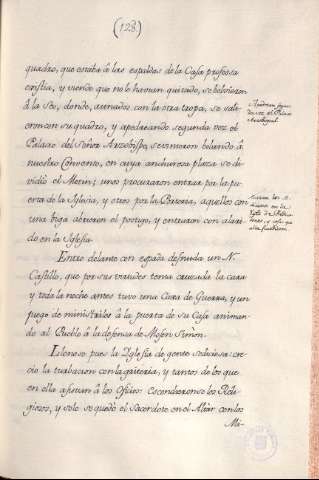 (128)
quadro, que estaba á las espaldas de la Casa professa
cristia, y viendo que no lo havian quitado, se bolvieron
á la Seo, donde, aunados con la otra tropa, se salie
eron con su quadro, y apedreando segunda vez el
Palacio del Señor Arzobispo, se vinieron bolando á
nuestro Convento, en cuya anchurosa plaza se di-
vidió el Motin; unos procuraron entrar por la pu-
erta de la Iglesia, y otros por la Porteria, aquellos con
una biga abrieron el postigo, y entraron con alari-
do en la Iglesia.
Entró delante con espada desnuda un N.
Castillo, que por sus virtudes tenia cruzada la cara
y toda la noche antes tuvo una Caxa de Guerra, y un
juego de ministriles á la puerta de su Casa animan-
do al Pueblo á la defensa de Mosen Simòn.
Llenose pues la Iglesia de gente sediciosa: cre-
cio la turbacion con la griteria, y tantos de los que
en ella asistian á los Oficios. Escondieronse los Reli-
giosos, y solo se quedó el Sacerdote en el Altàr con los
Mi-
segun
da vez el Palacio
Arzobispal.